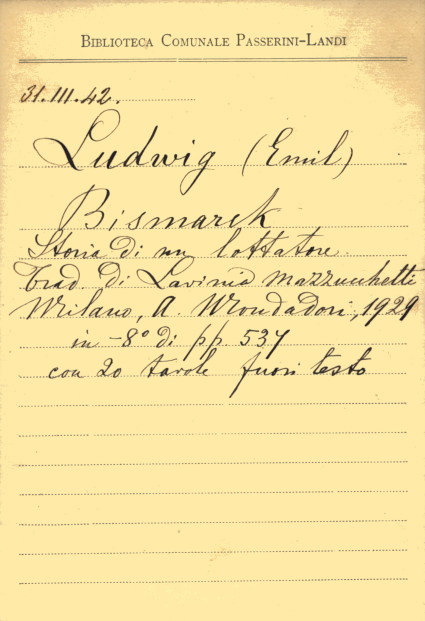 BIBLIOTECA COMUNALE PASSERINI-LANDI
31.III.42.
Ludwig (Emil)
Bismarck
Storia di un lottatore.
Trad. di Lavinia Mazzucchetti
Milano, A. Mondadori, 1929
in-8° di pp. 537
con 20 tavole fuori testo